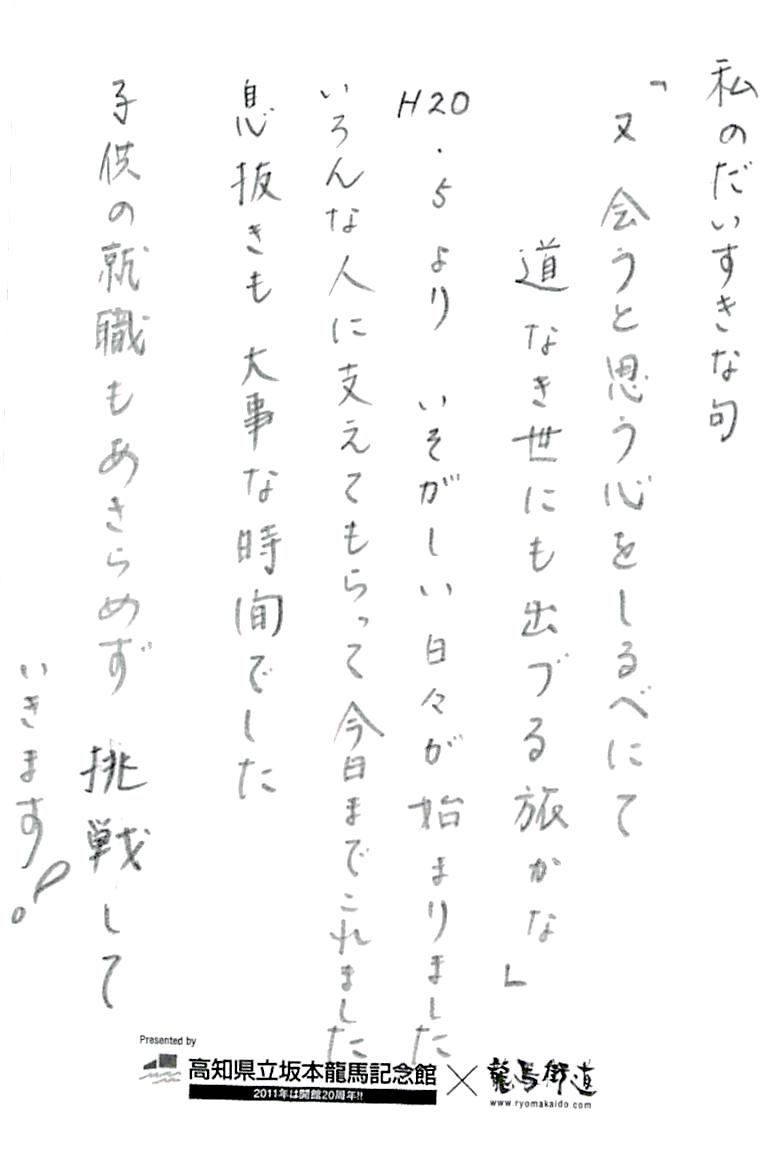 私のだいすきな句
「又 会うと思う心をしるべにて
道なき世にも出づる旅かな」
H20.5より いそがしい日々が始まりました
いろんな人に支えてもらって今日までこれました
息抜きも大事な時間でした
子供の就職もあきらめず 挑戦して
いきます!
Presented by
高知県立坂本龍馬記念館×龍馬街道
2011年は開館20周年!!
www.ryomakaido.com